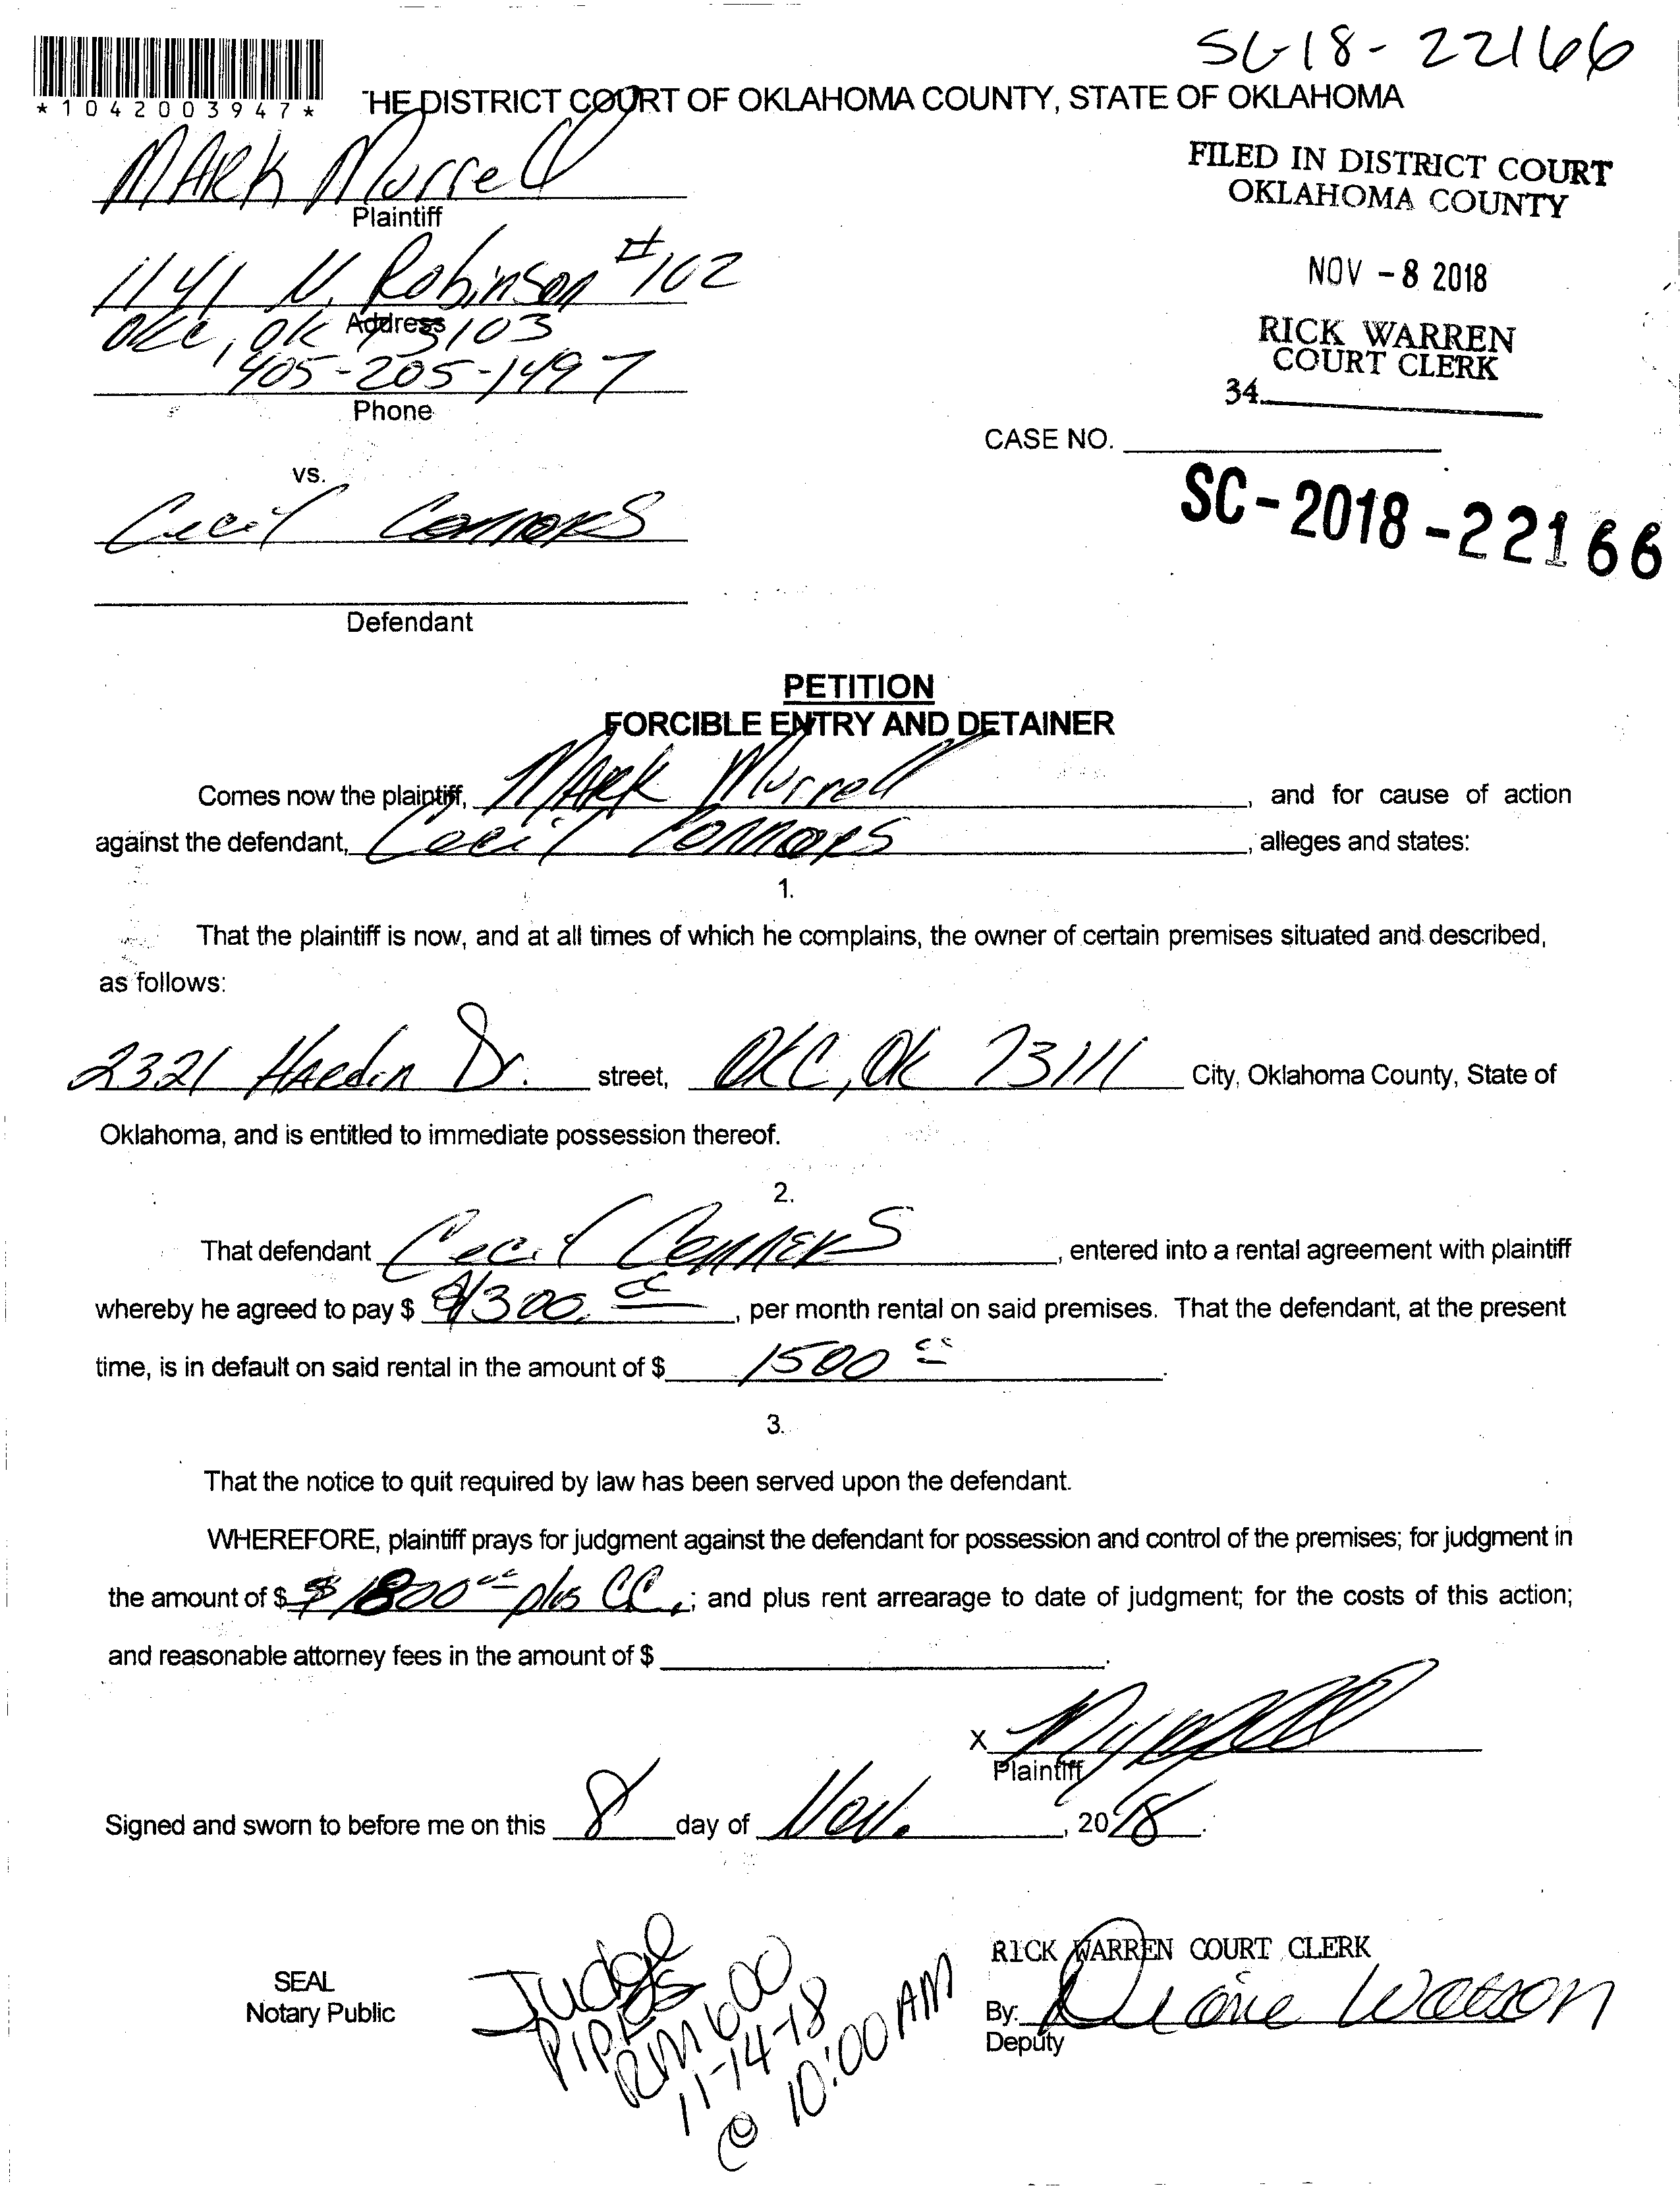 SC-18-22166
*1042003947*
THE DISTRICT COURT OF OKLAHOMA COUNTY, STATE OF OKLAHOMA
MARK Murrell
Plaintiff
FILED IN DISTRICT COURT
OKLAHOMA COUNTY
1141 N. Robinson #102
Address
OKC, OK 73103
NOV - 8 2018
405-205-1497
Phone
RICK WARREN
COURT CLERK
34.
CASE NO.
SC-2018-22166
vs.
Cecil Connors
Defendant
PETITION
FORCIBLE ENTRY AND DETAINER
Comes now the plaintiff, MARK Murrell, and for cause of action
against the defendant, Cecil Connors, alleges and states:
1.
That the plaintiff is now, and at all times of which he complains, the owner of certain premises situated and described,
as follows:
2321 Hardin Dr. street, OKC, OK 73111 City, Oklahoma County, State of
Oklahoma, and is entitled to immediate possession thereof.
2.
That defendant Cecil Conners, entered into a rental agreement with plaintiff
whereby he agreed to pay $ $1300.00, per month rental on said premises. That the defendant, at the present
time, is in default on said rental in the amount of $ 1500 00.
3.
That the notice to quit required by law has been served upon the defendant.
WHEREFORE, plaintiff prays for judgment against the defendant for possession and control of the premises; for judgment in
the amount of $ $1800 00 plus CC.; and plus rent arrearage to date of judgment; for the costs of this action;
and reasonable attorney fees in the amount of $ .
X
Plaintiff
Signed and sworn to before me on this 8 day of Nov., 2018.
SEAL
Notary Public
Judge
PIPES
RM 600
11-14-18
@ 10:00 AM
RICK WARREN COURT CLERK
By: Diane Watson
Deputy